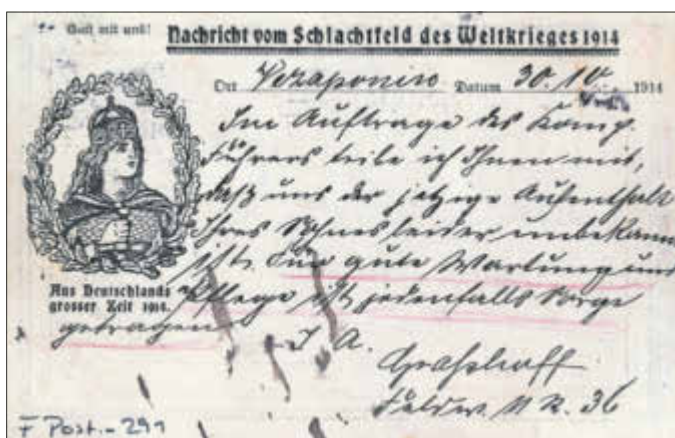 Gott mit uns!
Nachricht vom Schlachtfeld des Weltkrieges 1914
Ort Vezaponin Datum 30. 10. 1914
Im Auftrage des Komp.
Führers teile ich Ihnen mit,
daß uns der jetzige Aufenthalt
Ihres Sohnes leider unbekannt
ist. Für gute Wartung und
Pflege ist jedenfalls Sorge
getragen
Aus Deutschlands
grosser Zeit 1914.
I A.
Feldw. 36
F Post.-291